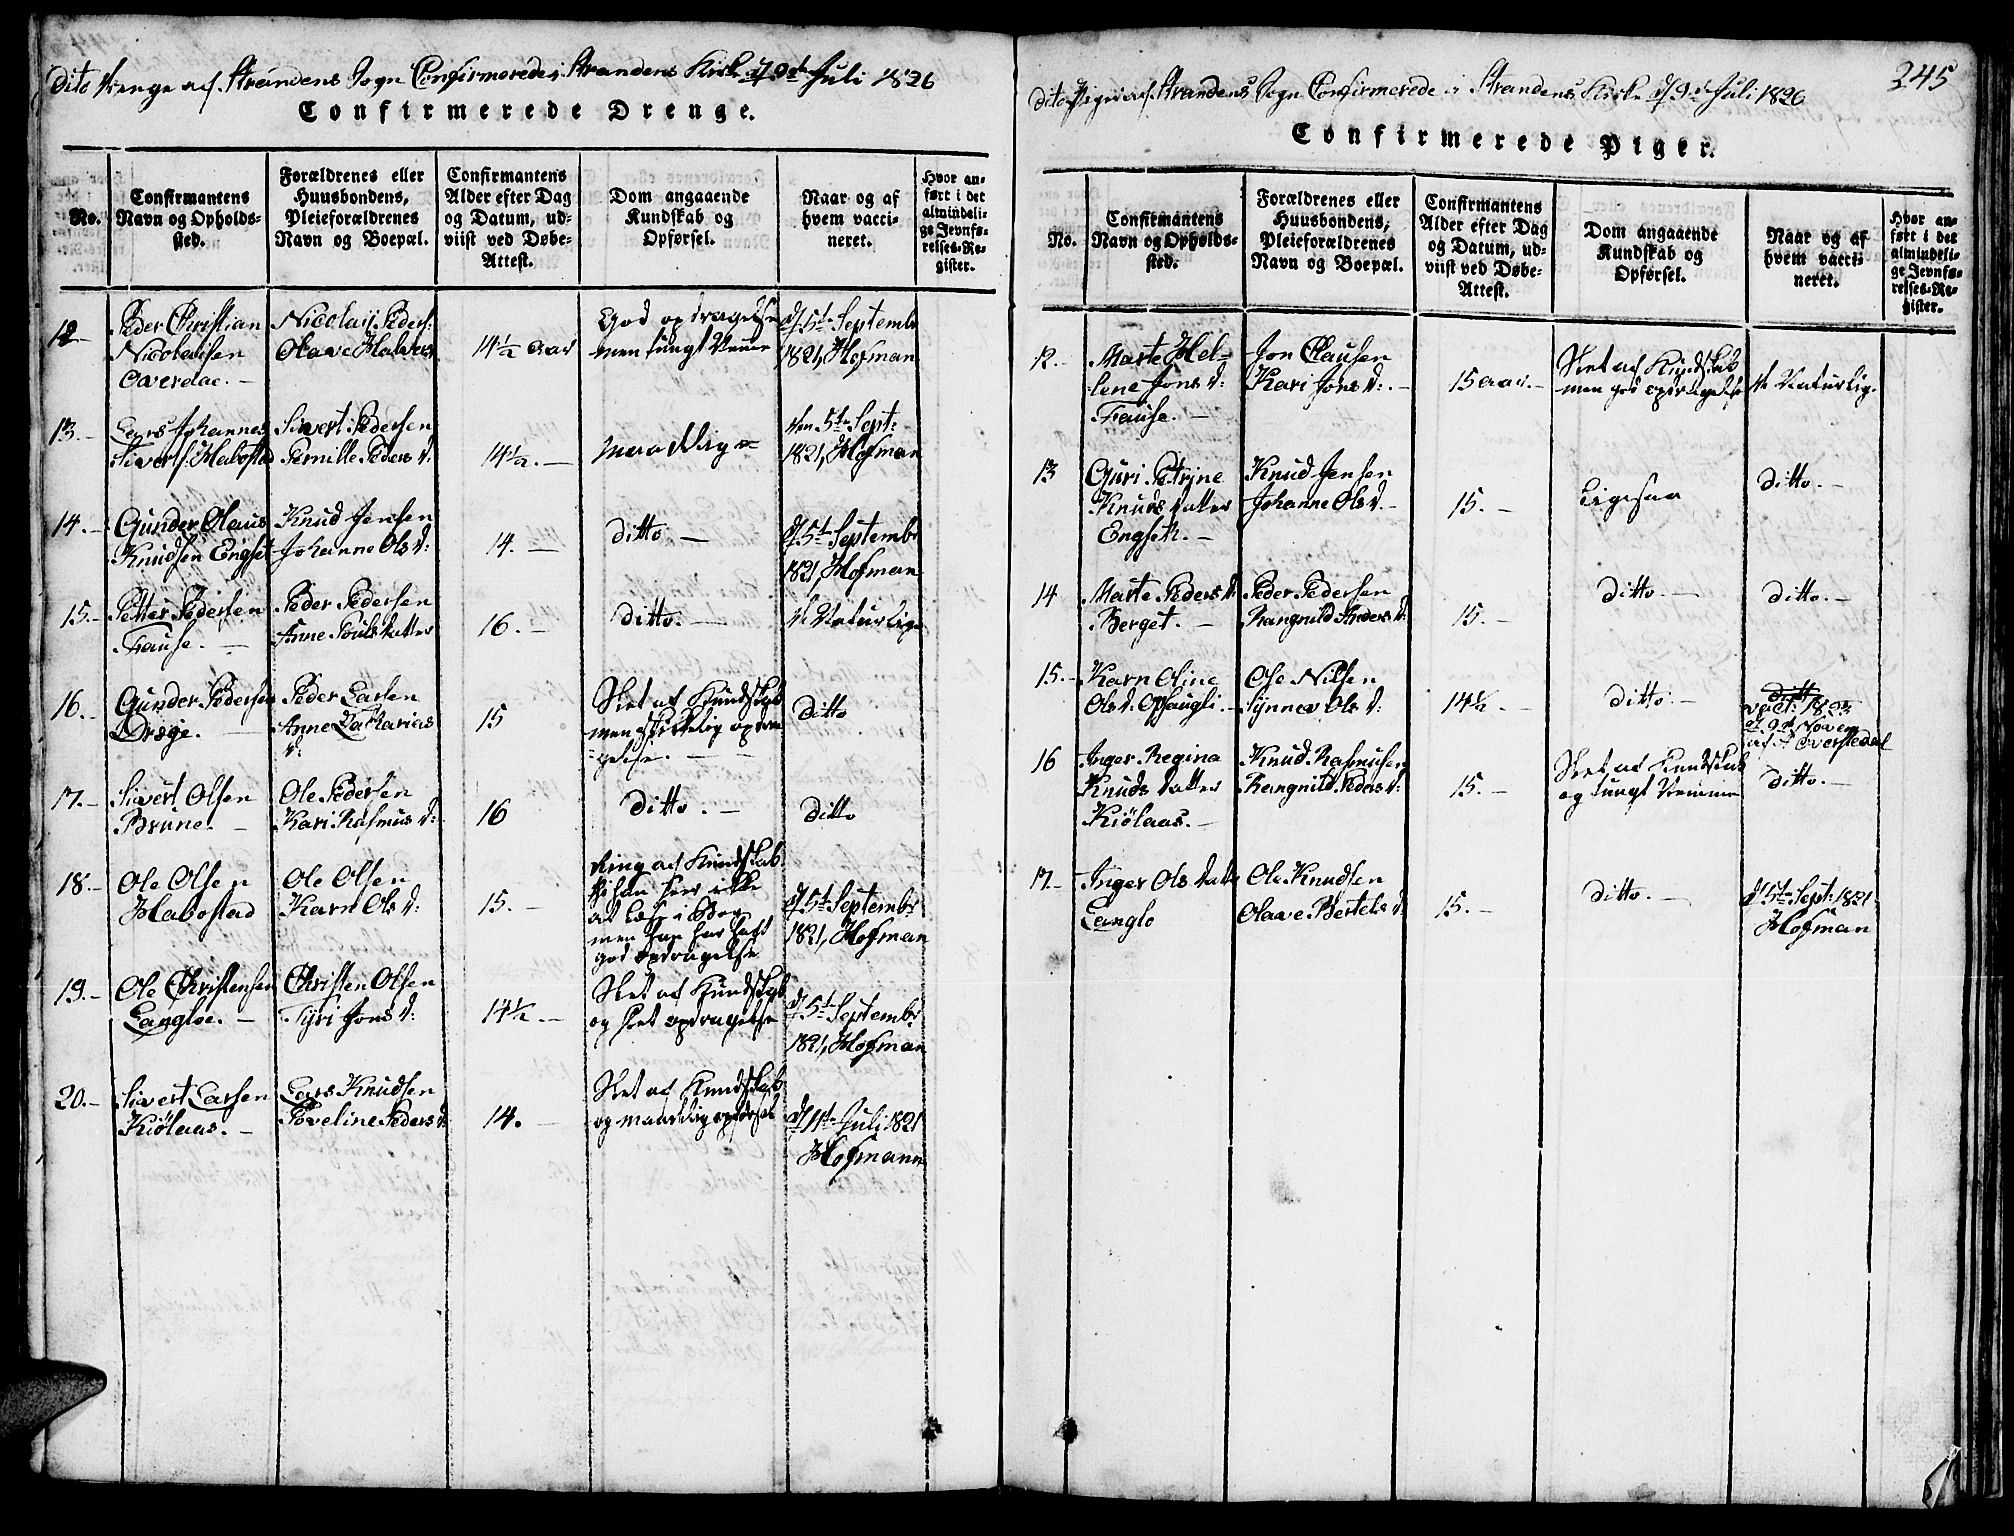 dito Drenge af Strandens Sogn Confirmerede i Strandens Kirke d 9de Juli 1826
Confirmerede Drenge.
No.
Confirmantens
Navn og Opholds-
sted.
Forældrenes eller
Huusbondens,
Pleieforældrenes
Navn og Boepæl.
Confirmantens
Alder efter Dag
og Datum, ud-
viist ved Døbe-
Attest.
Dom angaaende
Kundskab og
Opførsel.
Naar og af
hvem vacci-
neret.
Hvor an-
ført i det
almindeli-
ge Jevnfø-
relses-Re-
gister.
12
Peder Christian
Nicolaisen
Overdae. -
Nicolaij Peders:
Olave Halvors
14½ aar
God opdragelse
men tungt Nemme
d 5te Septembr
1821, Hofman
13. -
Lars Johannes
Sivert s. Habostad
Sivert Pedersen
Pernille Peders d:
14½. -
maadelig
den 5te Sept:
1821, Hofman
14. -
Gunder Olaus
Knudsen Engset
Knud Jensen
Johanne Ols d:
14. -
ditto -
d 5te Septembr
1821, Hofman
15. -
Petter Pedersen
Fause. -
Peder Pedersen
Anne Pouls datter
16. -
ditto. -
d Naturlige
16. -
Gunder Pedersen
Drøge. -
Peder Larsen
Anne Zacharias
d:
15
Slet af Kundskab
men skikkelig opdra
gelse. -
ditto
17. -
Sivert Olsen
Brune. -
Ole Pedersen
Kari Rasmus d:
16
ditto. -
ditto
18. -
Ole Olsen
Habostad
Ole Olsen
Karn Ols d:
15. -
Ring af Kundskab
han ikke
at læse i Bog
men han har haft
god opdragelse
d 5te Septembr
1821, Hofman
19. -
Ole Christensen
Langloe. -
Christen Olsen
Syri Jons d:
14½. -
Slet af Kundskab
og slet opdragelse
d 5te Septembr
1821, Hofman
20. -
Sivert Larsen
Kiølaas. -
Lars Knudsen
Poveline Peders d:
14. -
Slet af Kundskab
og maadelig opførsel
d 11te Juli 1821
Hofmann
245
dito Piger af Strandens Sogn Confirmerede i Strandens Kirke d 9de Juli 1826
Confirmerede Piger.
No.
Confirmantens
Navn og Opholds-
sted.
Forældrenes eller
Huusbondens,
Pleieforældrenes
Navn og Boepæl.
Confirmantens
Alder efter Dag
og Datum, ud-
viist ved Døbe-
Attest.
Dom angaaende
Kundskab og
Opførsel.
Naar og af
hvem vacci-
neret.
Hvor an-
ført i det
almindeli-
ge Jevnfø-
relses-Re-
gister.
12. -
Marte Hel-
lene Jons d:
Fause. -
Jon Clausen
Kari Jons d: -
15 aar. -
Slet af Kundskab
men god opdragelse
d Naturlig.
13
Guri Petrine
Knuds datter
Engseth. -
Knud Jensen
Johanne Ols d. -
15. -
Ligesaa
ditto. -
14
Marte Peders d:
Berget. -
Peder Pedersen
Rangnild Anders d:
15. -
ditto. -
ditto. -
15. -
Karn Oline
Ols d. Opsaugli. -
Ole Nilsen
Synnev Ols d:
14½ -
ditto. -
ditto
vacc: 1823
d 9de Novem
af A Overstedal
16
Inger Regina
Knuds datter
Kiølaas. -
Knud Rasmusen
Rangnild Peders d:
15. -
Slet af Kundskab
og tungt Nemme
ditto. -
17. -
Inger Ols datter
Langlo
Ole Knudsen
Olave Bertels d:
15. -
ditto. -
d 5te Sept: 1821
Hofman